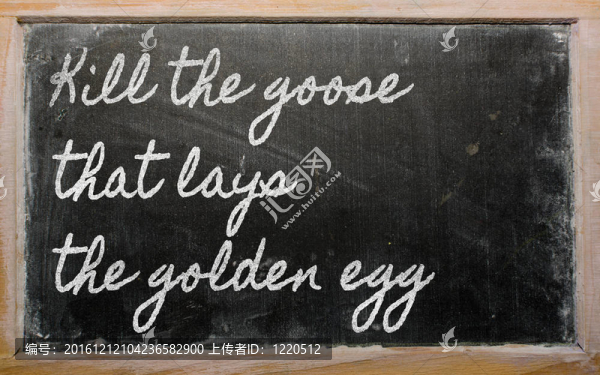 Kill the goose
that lays
the golden egg
汇图网
www.huitu.com
编号：20161212104236582900 上传者ID：1220512